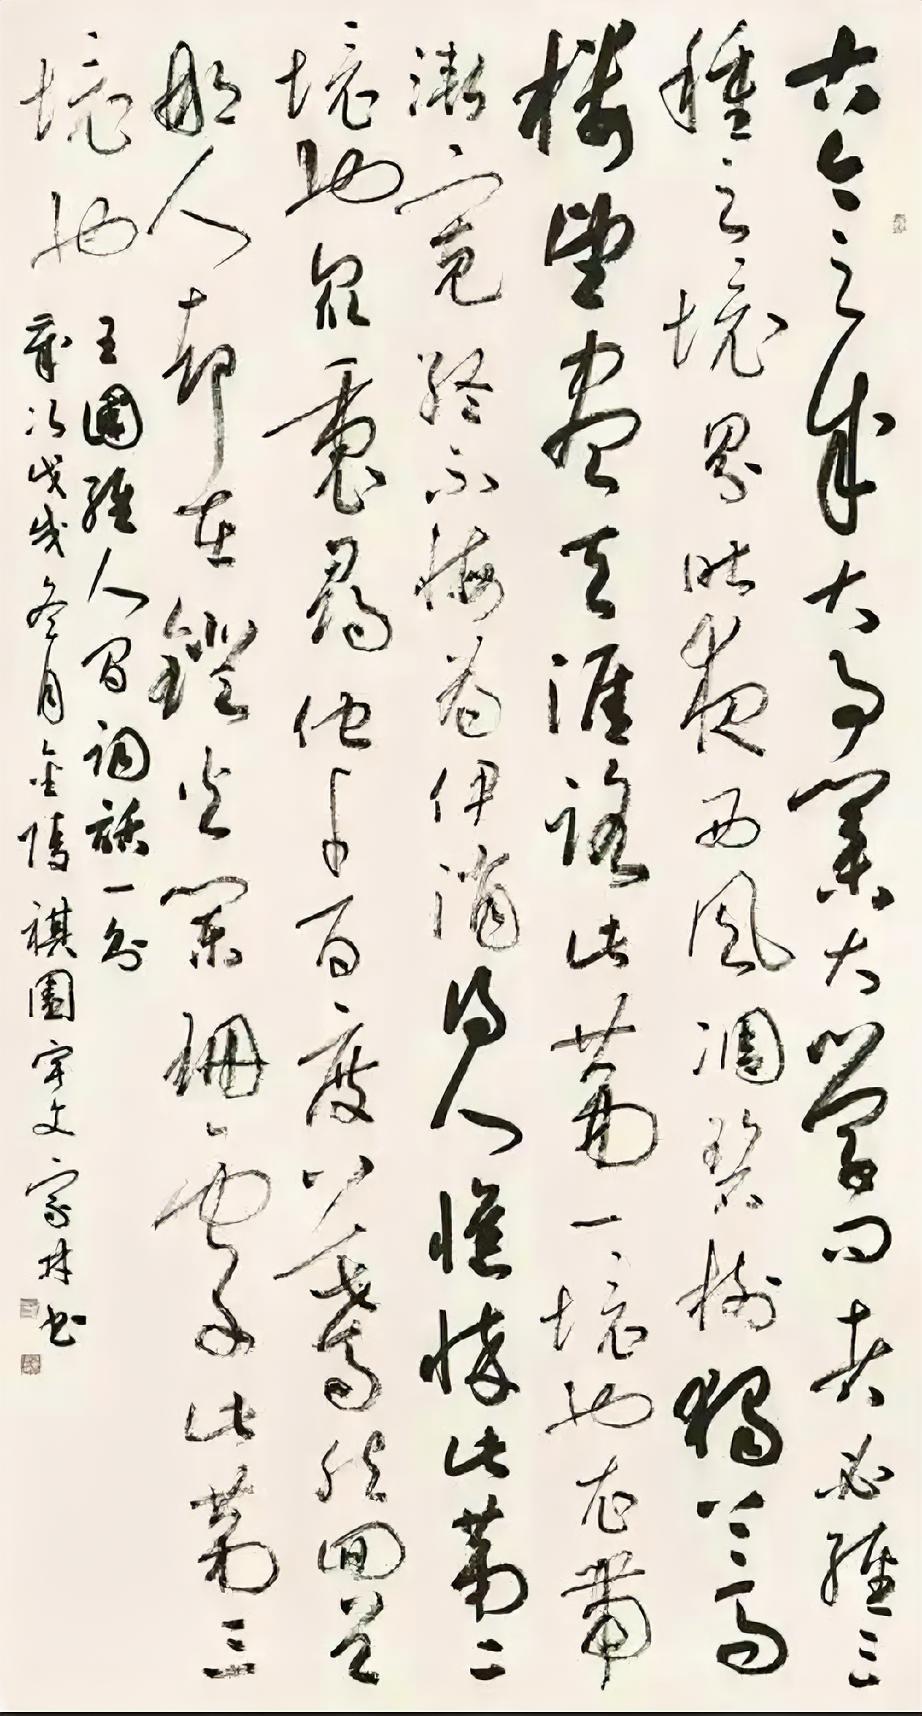 古今之成大事業大學問者必經三
種之境界昨夜西風凋碧樹獨上高
樓望盡天涯路此第一境也衣帶
漸寬終不悔為伊消得人憔悴此第二
境也眾裏尋他千百度驀然回首
那人卻在燈火闌珊處此第三
境也
王國維人間詞話一則
歲次戊戌冬月金陵祺園宇文家林書